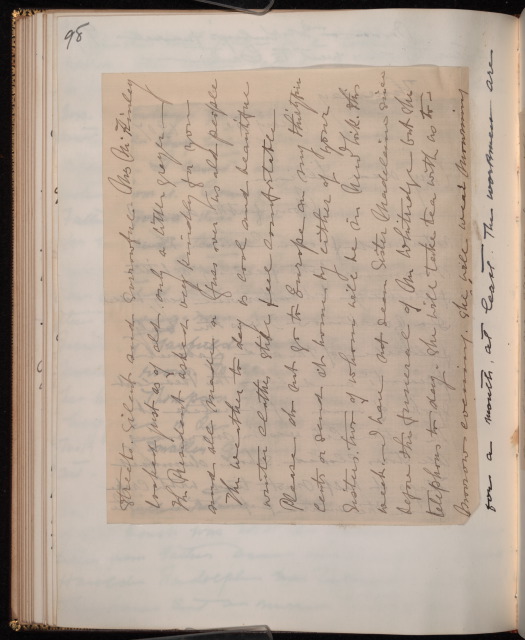 98
streets. Silent and sorrowful. Mrs McKinley
looked just as of old only a little grayer.
The President asked very kindly for you
and all made a fuss over us old people
The weather to day is cool and beautiful
winter clothes still feel comfortable
Please do not go to Europe on my
lists or send at home by either of your
sisters, two of whom will be in New York this
week. I have not seen Sister Madeleine since
before the funeral of Mr Whitridge but she
telephones to day. She will take tea with us to-
morrow evening. She will wed morning
for a month, at least. The workmen are